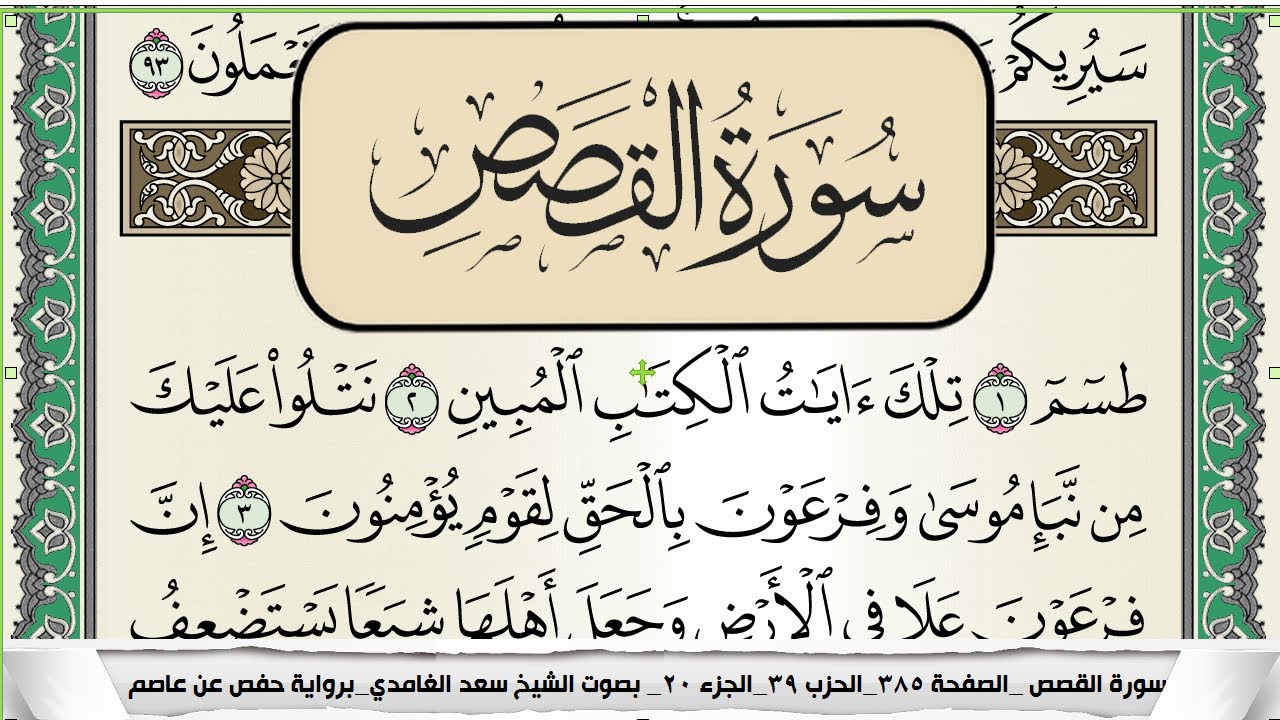 سَيُرِيكُمْ
تَعْمَلُونَ ٩٣
سُورَةُ الْقَصَصِ
طسٓمٓ ١ تِلْكَ ءَايَـٰتُ ٱلْكِتَـٰبِ ٱلْمُبِينِ ٢ نَتْلُوا۟ عَلَيْكَ
مِن نَّبَإِ مُوسَىٰ وَفِرْعَوْنَ بِٱلْحَقِّ لِقَوْمٍ يُؤْمِنُونَ ٣ إِنَّ
فِرْعَوْنَ عَلَا فِى ٱلْأَرْضِ وَجَعَلَ أَهْلَهَا شِيَعًا يَسْتَضْعِفُ
سورة القصص _الصفحة ٣٨٥_الحزب ٣٩_الجزء ٢٠_ بصوت الشيخ سعد الغامدي_برواية حفص عن عاصم